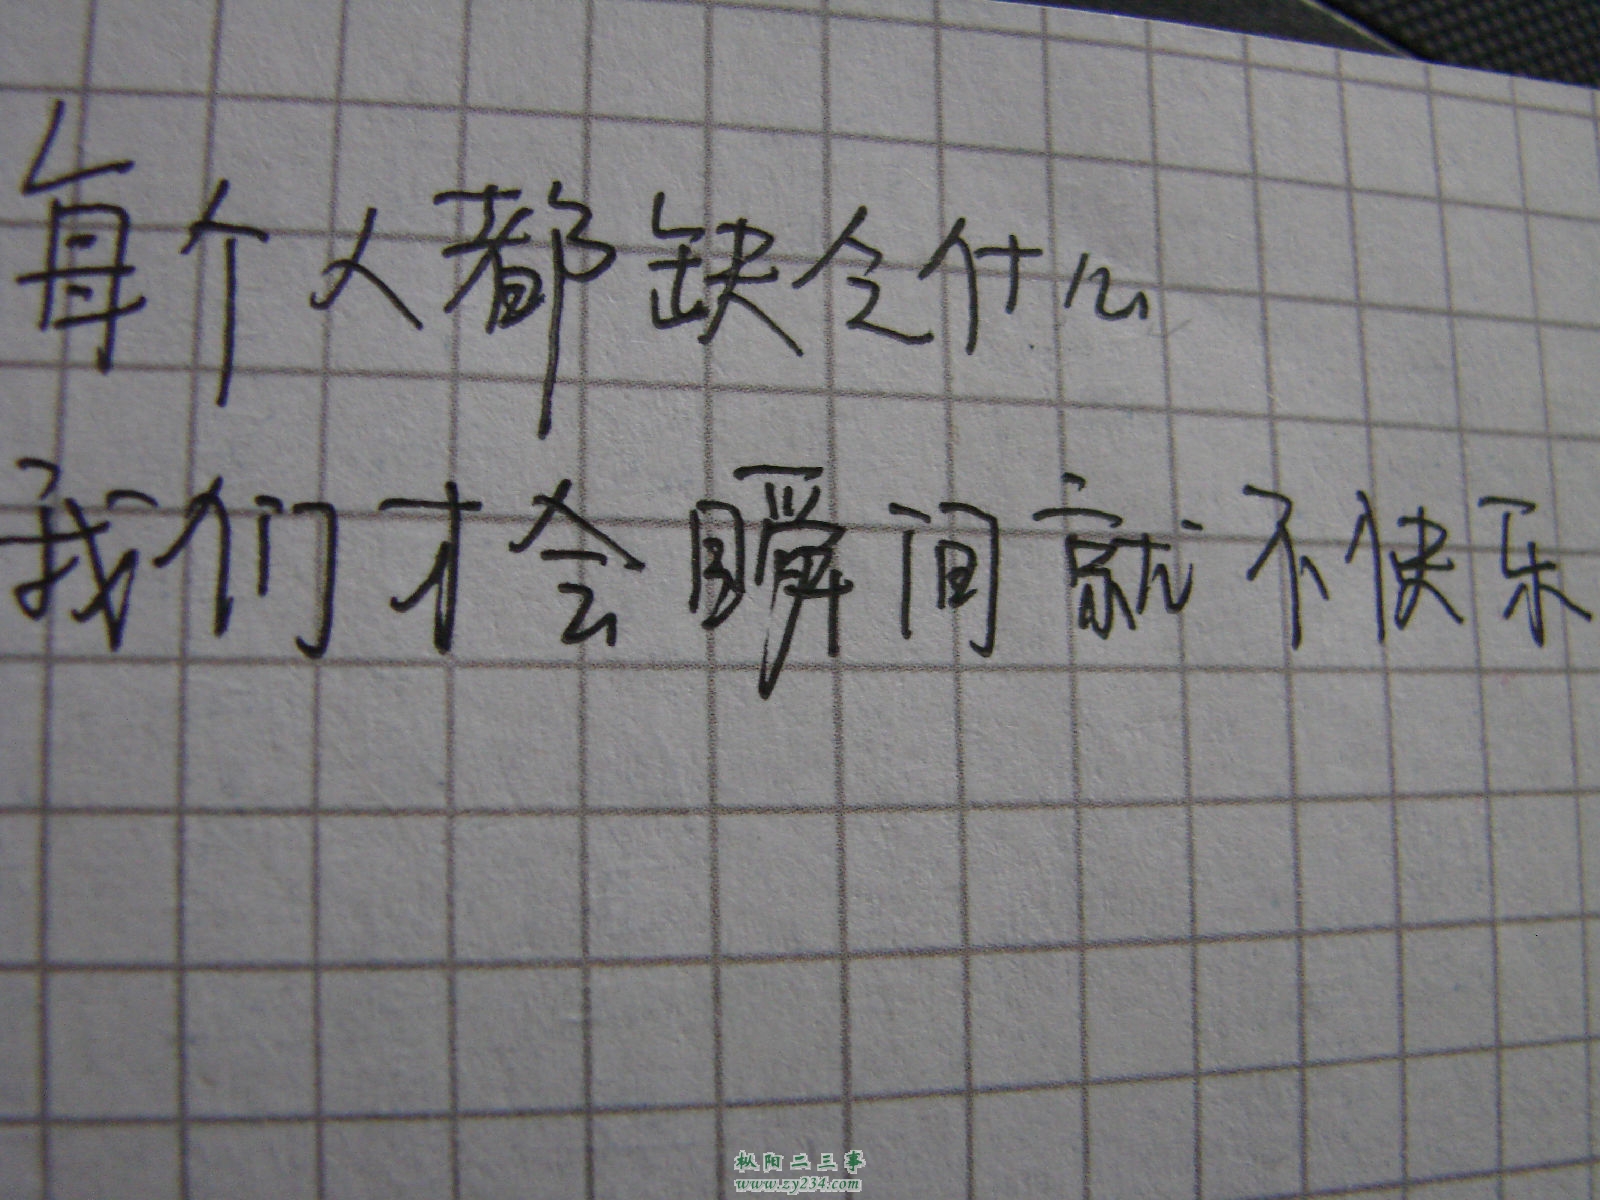 每个人都缺令什么
我们才会瞬间就不快乐
枞阳二三事
www.zy234.com